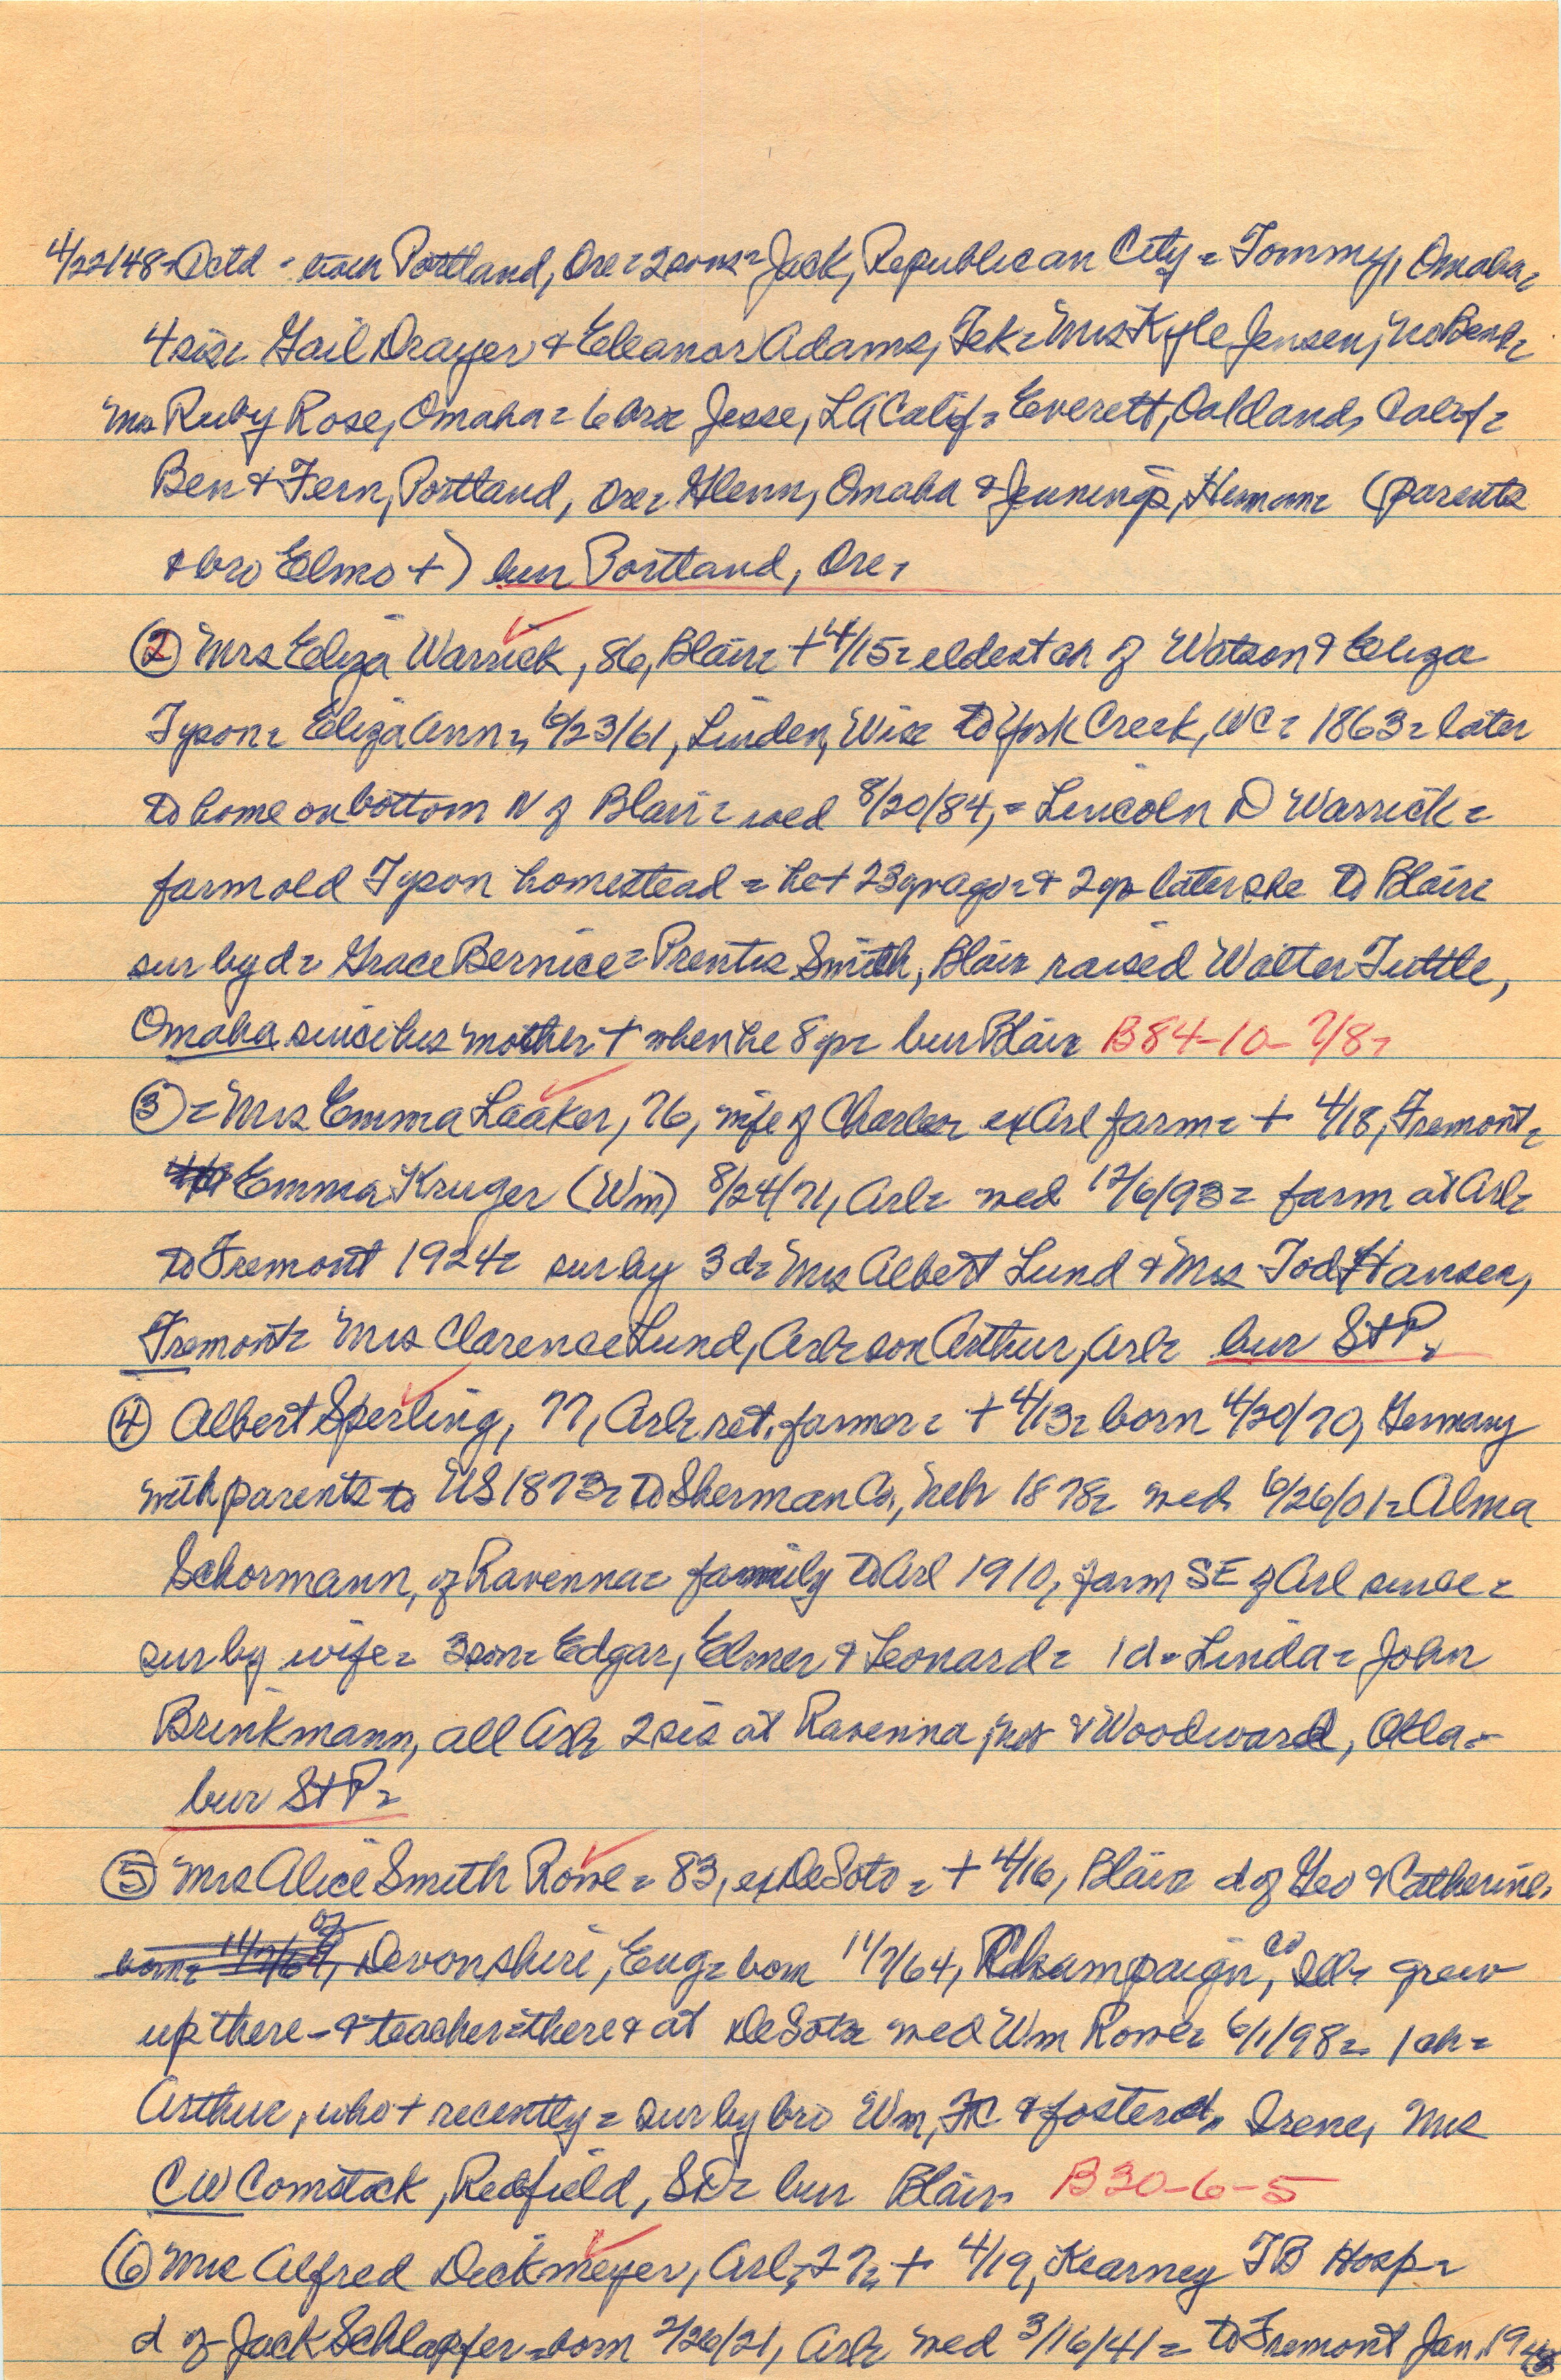 4/22/48 = Octd - town Portland, Ore = 2 sons = Jack, Republican City = Tommy, Omaha =
4 sis = Gail Drayer & Eleanor Adams, Tek = Mrs Kyle Jensen, No Bend =
Mrs Ruby Rose, Omaha = 6 bro = Jesse, LA Calif = Everett, Oakland, Calif =
Ben & Fern, Portland, Ore = Glenn, Omaha & Jennings, Herman = (parents
& bro Elmo +) bur Portland, Ore,
② Mrs Eliza Warrick, 86, Blair = + 4/15 = eldest ch of Watson & Eliza
Tyson = Eliza Ann =, 6/23/61, Linden, Wis = to York Creek, WC = 1863 = later
to home on bottom N of Blair = wed 8/20/84, = Lincoln D Warrick =
farm old Tyson homestead = he + 23 yr ago = & 2 yr later she to Blair =
sur by d = Grace Bernice = Prentis Smith, Blair = raised Walter Tuttle,
Omaha since his mother + when he 8 yr = bur Blair = B84-10-7/8 =
③ = Mrs Emma Laaker, 76, wife of Charles = ex Arl farm = + 4/18, Fremont =
Emma Kruger (Wm) 8/24/71, Arl = wed 12/6/93 = farm at Arl =
to Fremont 1924 = sur by 3 d = Mrs Albert Lund & Mrs Tod Hansen,
Fremont = Mrs Clarence Lund, Arl = son Arthur, Arl = bur St P,
④ Albert Sperling, 77, Arl = ret. farmer = + 4/13 = born 4/20/70, Germany
with parents to US 1873 = to Sherman Co., Neb 1878 = wed 6/26/01 = Alma
Schormann, of Ravenna = family to Arl 1910, farm SE of Arl since =
sur by wife = 3 son = Edgar, Elmer & Leonard = 1 d = Linda = John
Brinkmann, all Arl = 2 sis at Ravenna, Neb & Woodward, Okla =
bur St P =
⑤ Mrs Alice Smith Rowe = 83, ex DeSoto = + 4/16, Blair = d of Geo & Catherine,
born = 11/7/64, of Devonshire, Eng = born 11/7/64, Champaign Co, Ill = grew
up there - & teacher = there & at DeSoto = wed Wm Rowe = 6/1/98 = 1 ch =
Arthur, who + recently = sur by bro Wm, FC & foster d, Irene, Mrs
C W Comstock, Redfield, SD = bur Blair = B30-6-5
⑥ Mrs Alfred Deckmeyer, Arl, 27 = + 4/19, Kearney TB Hosp =
d of Jack Schlapfer = born 2/26/21, Arl = wed 3/16/41 = to Fremont Jan, 1948